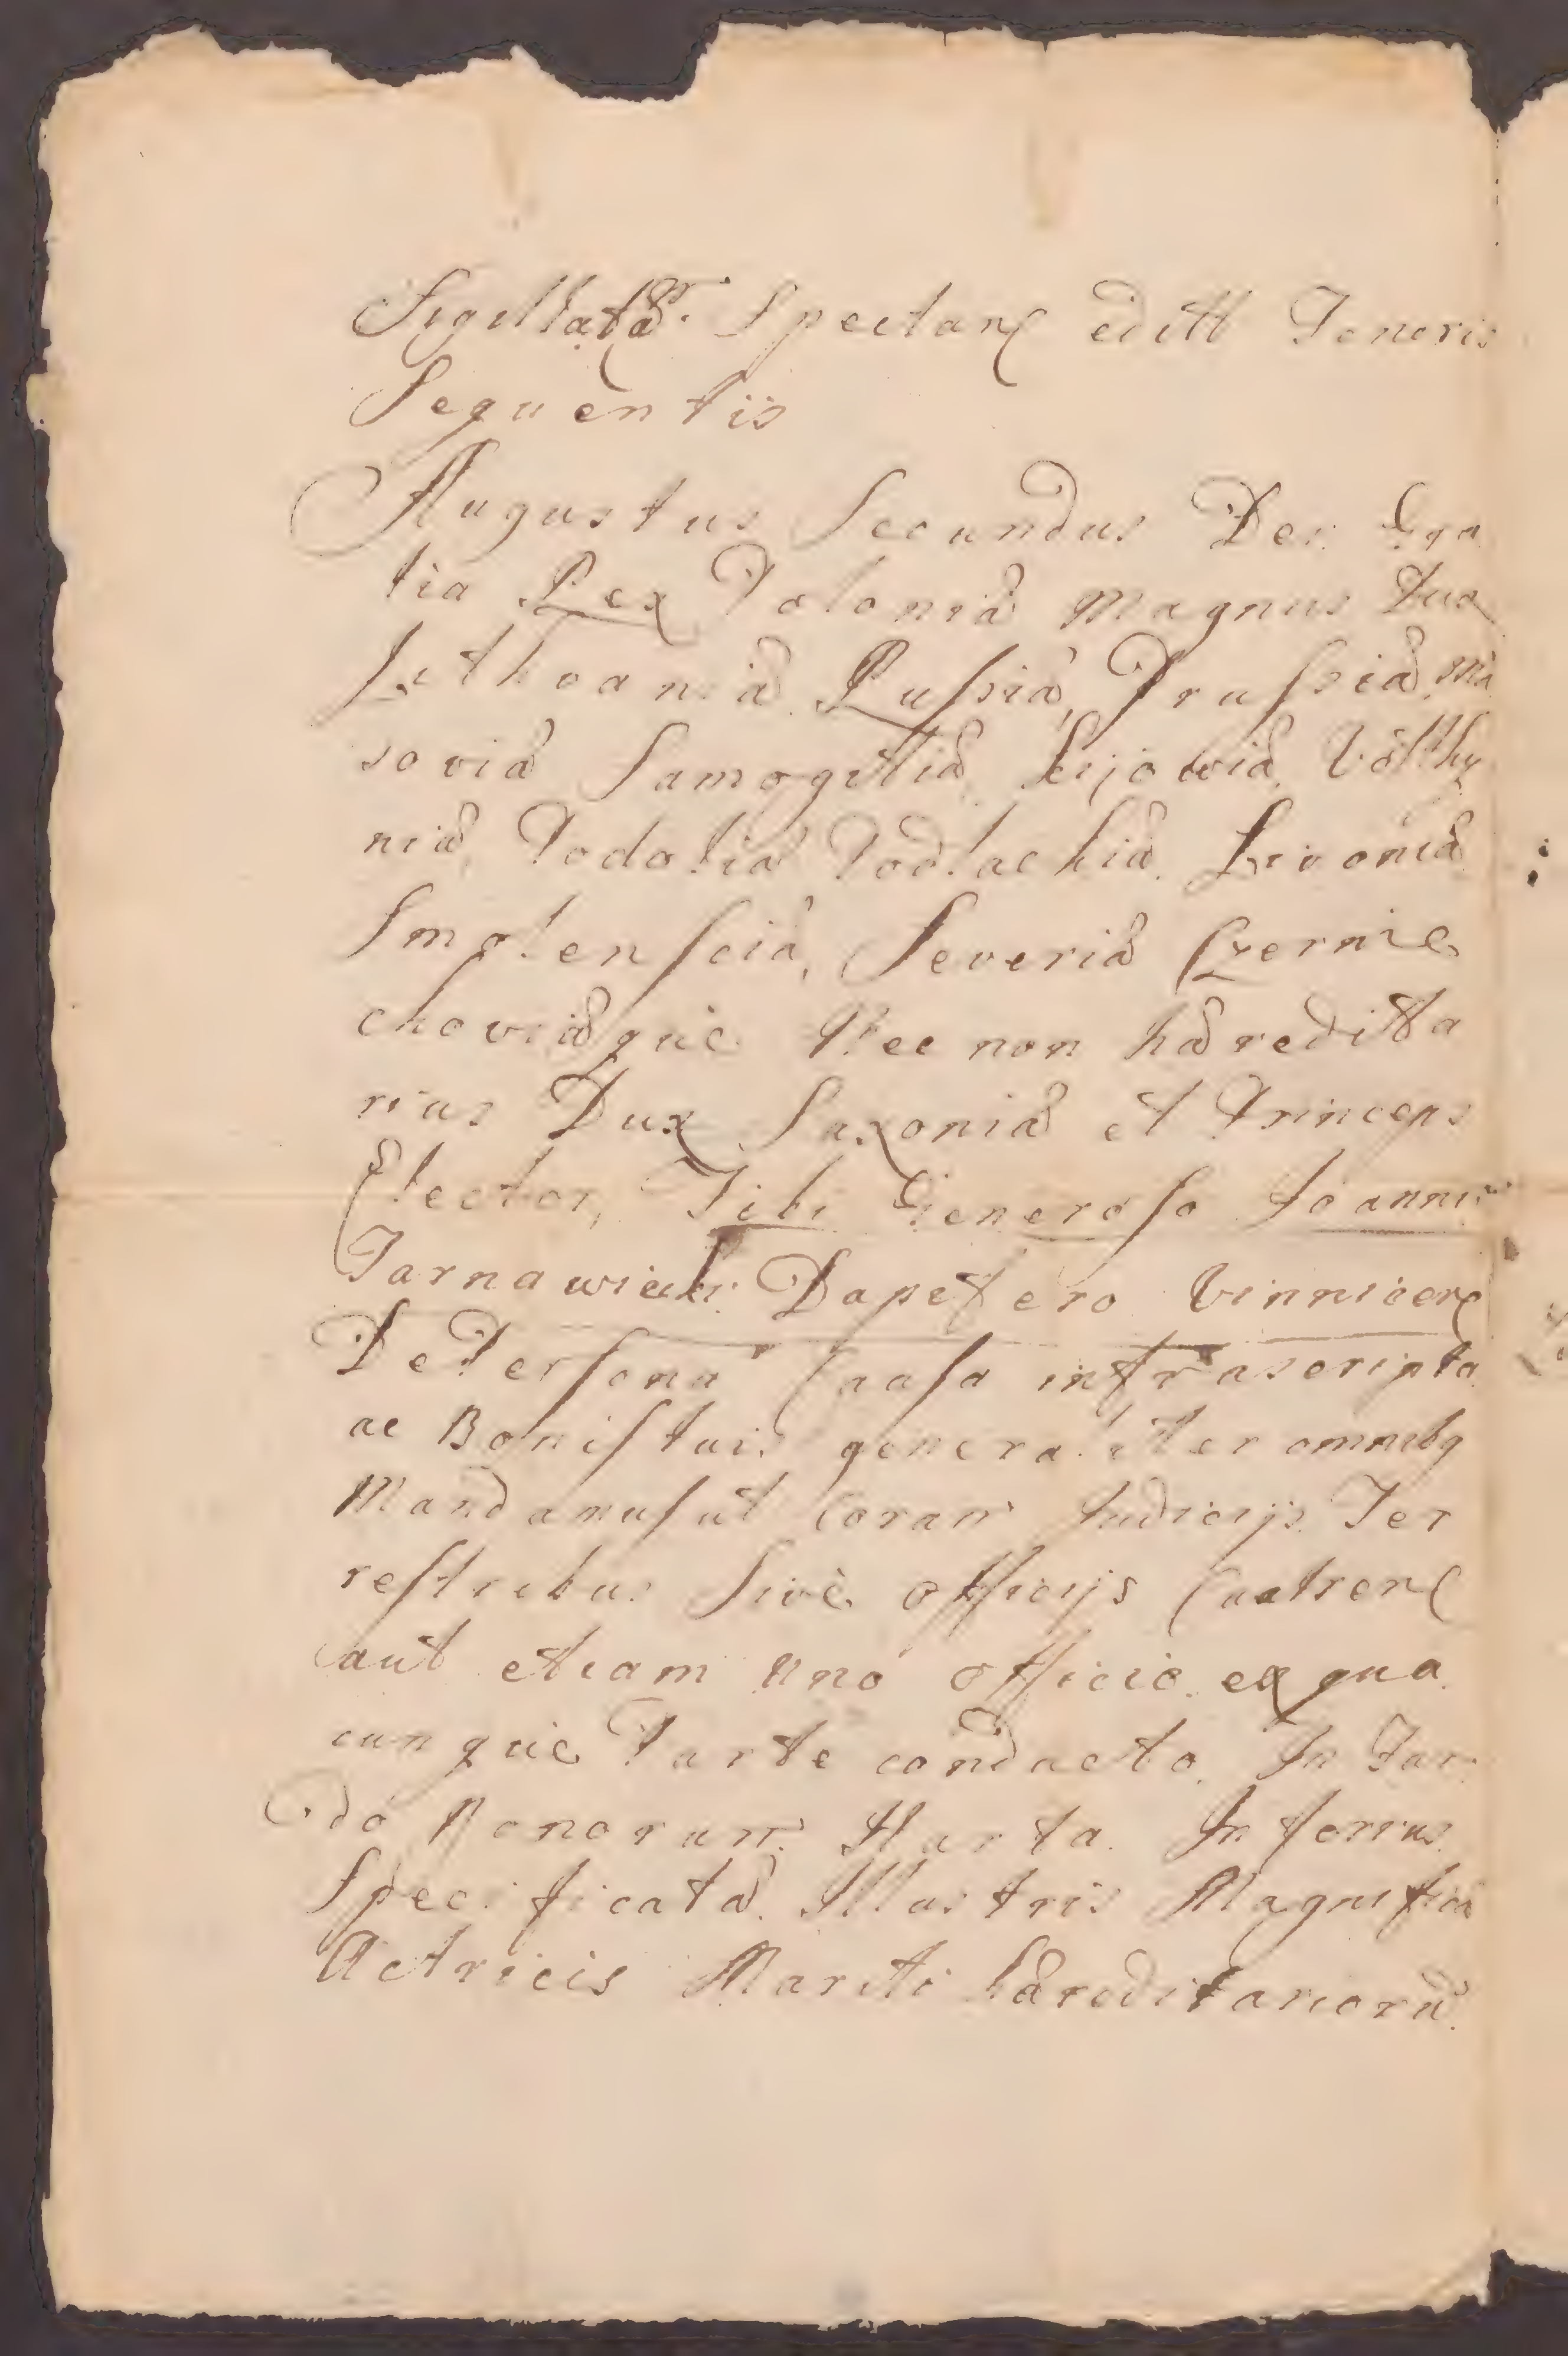 Sigillatæ Spectanꝭ editt Tenoris
Sequentis
Augustus Secundus Dei Gra
tia Rex Poloniæ Magnus Dux
Lithvaniæ Russiæ, Prussiæ Ma
soviæ Samogittiæ, Kijowiæ, Volhy
niæ, Podoliæ Podlachiæ Livoniæ
Smolensciæ, Severiæ Czernie
choviæque Nec non hæreditta
rius Dux Saxoniæ et Princeps
Elector, Tibi Generoso Joanni
Tarnawiecki Dapifero Vinnicenꝭ
De Persona Causa infrascripta
ac Bonis tuis generaliter omnibq
Mandamus ut Coram Judicijs Ter
restribus Sive officijs Castrenꝭ
aut etiam uno officio ex qua
cunque Parte conducto In Fun
do Bonorum Harta In ferius
Specificatæ Illustris Magnificæ
Actricis Mariti hæreditariorũ